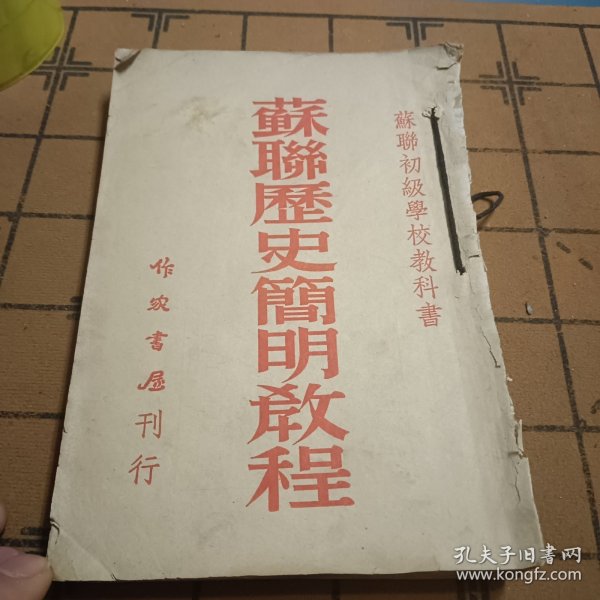 蘇聯初級學校教科書
蘇聯歷史簡明教程
作家書屋刊行
孔夫子旧書网
www.kongfz.com